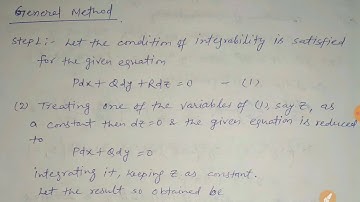 General Method
Step1:- Let the condition of integrability is satisfied
for the given equation
Pdx + Qdy + Rdz = 0 - (1)
(2) Treating one of the variables of (1), say z, as
a constant then dz=0 & the given equation is reduced
to
Pdx + Qdy = 0
integrating it, keeping z as constant.
Let the result so obtained be